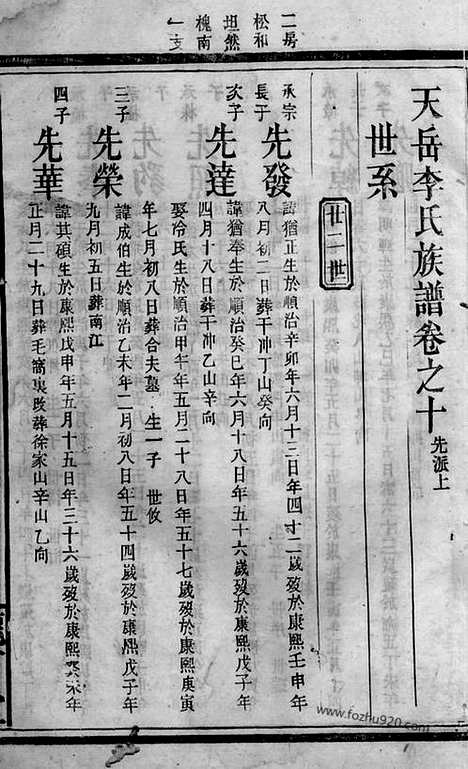 二房
松和
坦然
槐南
一支
天岳李氏族譜卷之十 先派上
世系
廿二世
承宗
長子 先發 諱猶正生於順治辛卯年六月十三日年四十二歲歿於康熙壬申年
八月初二日葬干冲丁山癸向
次子 先達 諱猶奉生於順治癸巳年六月十八日年五十六歲歿於康熙戊子年
四月十八日葬干冲乙山辛向
娶冷氏生於順治甲午年五月二十八日年五十七歲歿於康熙庚寅
年七月初八日葬合夫墓 生一子 世攸
三子 先榮 諱成伯生於順治乙未年二月初八日年五十四歲歿於康熙戊子年
九月初五日葬南江
四子 先華 諱其碩生於康熙戊申年五月十五日年三十六歲歿於康熙癸未年
正月二十九日葬毛窩裏改葬徐家山辛山乙向
www.fozhu920.com